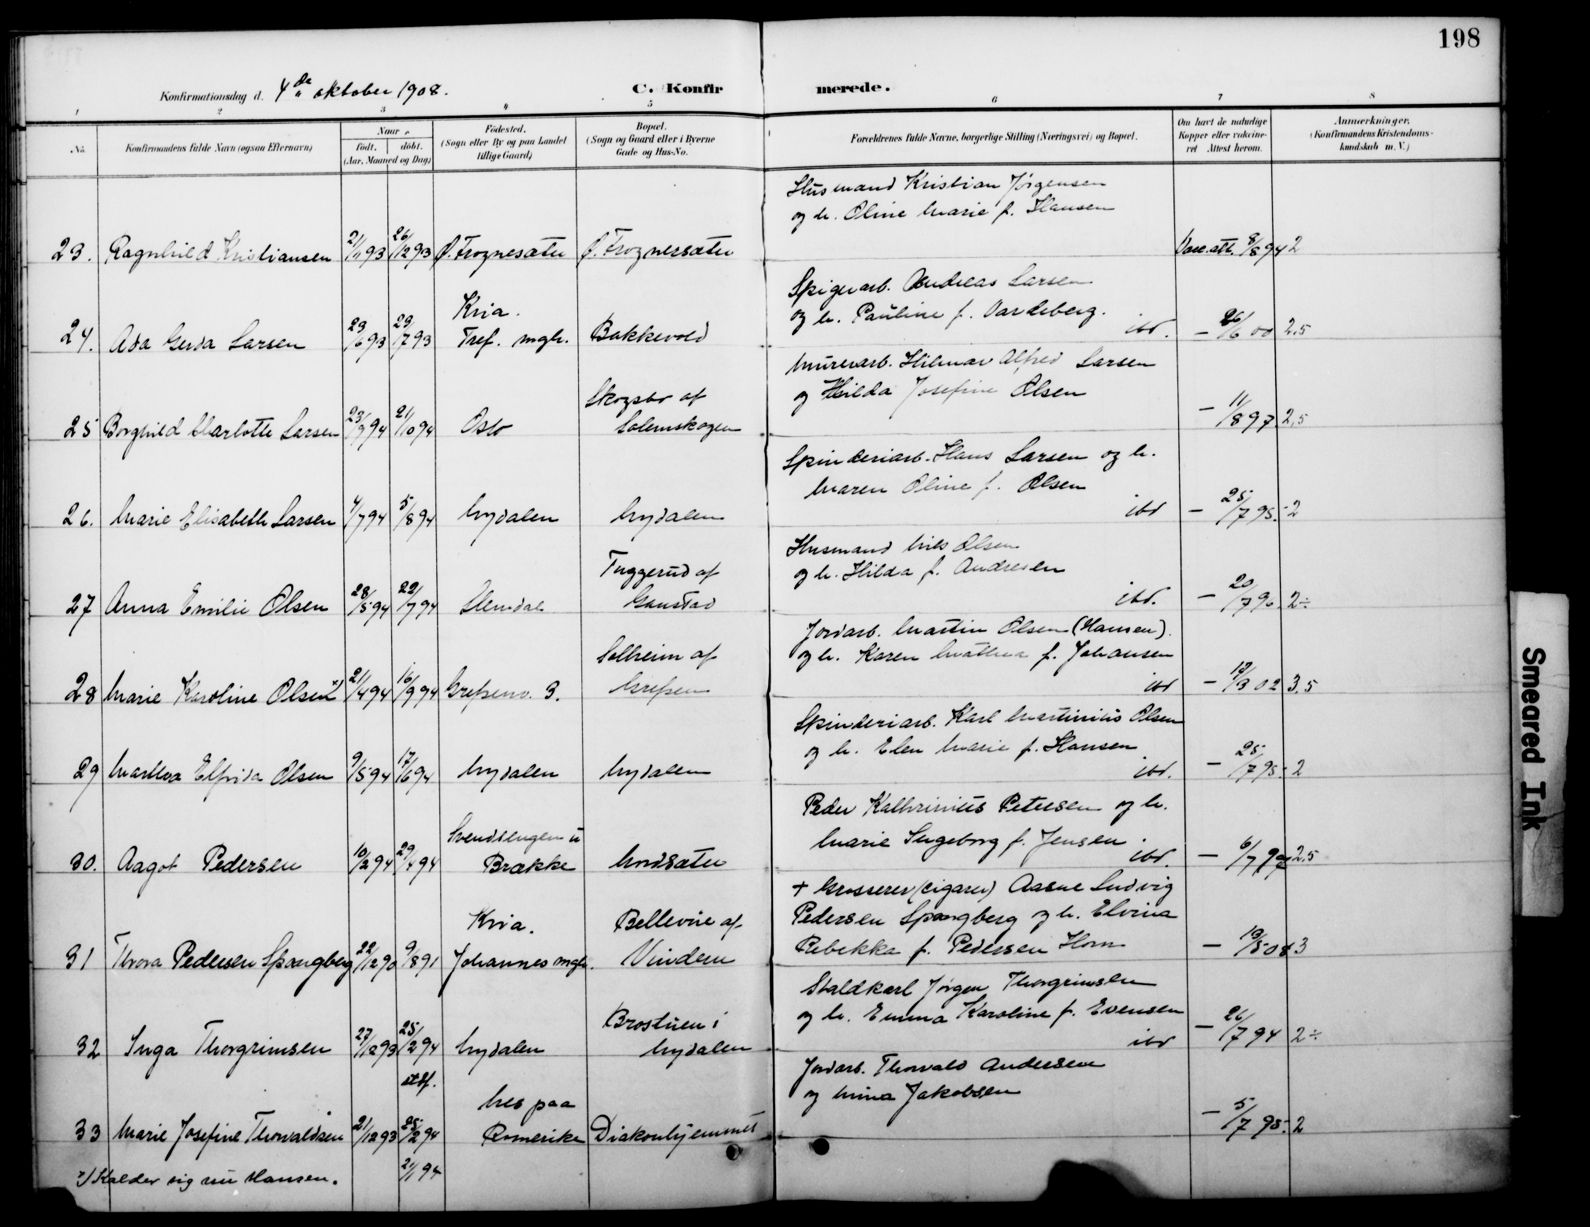 198
Konfirmationsdag d. 4de oktober 1908.
C. Konfir merede.
1 2 3 4 5 6 7 8
No.
Konfirmandens fulde Navn (ogsaa Efternavn)
Naar
født. døbt.
(Aar, Maaned og Dag)
Fødested.
(Sogn eller By og paa Landet
tillige Gaard)
Bopæl.
(Sogn og Gaard eller i Byerne
Gade og Hus-No.
Forældrenes fulde Navne, borgerlige Stilling (Næringsvei) og Bopæl.
Om havt de naturlige
Kopper eller vakcine-
ret Attest herom.
Anmerkninger.
(Konfirmandens Kristendoms-
kundskab m. V.)
Husmand Kristian Jørgensen
og h. Oline Marie f. Hansen
23. Ragnhild Kristiansen 21/11 93 26/12 93 Ø. Frognesæter Ø. Frognersæter Vacc. att. 8/8 94 2
Spigerarb. Andreas Larsen
og h. Pauline f. Vardeberg. ibd.
24. Asa Gerda Larsen 23/6 93 29/7 93 Kria. Tref. mgh. Bakkevold - 26/6 00 2,5
Murerarb. Hilmar Alfred Larsen
og Hilda Josefine Olsen
25 Borghild Charlotte Larsen 23/9 94 21/10 94 Oslo Skogsbr af Solemskogen - 11/8 97. 2,5
Spinderiarb. Hans Larsen og h.
Maren Oline f. Olsen ibd
26. Marie Elisabeth Larsen 4/7 94 5/8 94 Nydalen Nydalen - 25/7 95. 2
Husmand Nils Olsen
og h. Hilda f. Andresen ibd.
27 Anna Emilie Olsen 28/5 94 22/7 94 Slemdal Tuggerud af Gaustad - 20/7 96 2÷
Jordarb. Martin Olsen (Hansen).
og h. Karen Mathea f. Johansen ibd
28 Marie Karoline Olsen x) 21/4 94 16/9 94 Grefsenv. 3. Solheim af Grefsen - 12/3 02 3,5
Spinderiarb. Karl Martinius Olsen
og h. Elen Marie f. Hansen ibd.
29 Marthea Elfrida Olsen 9/5 94 17/6 94 Nydalen Nydalen - 25/7 95 - 2
Peder Kathrinius Petersen og h.
Marie Ingeborg f. Jensen. ibd.
30. Aagot Pedersen 10/2 94 29/4 94 Svendsengen u Brække Nordsæter - 6/7 97 2,5
+ Grosserer (cigarer) Aasne Ludvig
Pedersen Spangberg og h. Elvina
Rebekka f. Pedersen Horn
31 Thora Pedersen Spangberg 22/12 90 9/8 91 Kria. Johannes mgh. Bellevue af Vindern - 19/5 08 3
Staldkarl Jørgen Thorgrimsen
og h. Emma Karoline f. Evensen ibd
32 Inga Thorgrimsen 27/12 93 25/2 94 Nydalen Brostuen i Nydalen - 26/7 94 2÷
Jordarb. Thorvald Andersen
og Mina Jakobsen
33 Marie Josefine Thorvaldsen 21/12 93 stdf. 25/2 94 21/1 94 Nes paa Romerike Diakonhjemmet - 5/7 95. 2
x) Kalder sig nu Hansen.
Smeared Ink